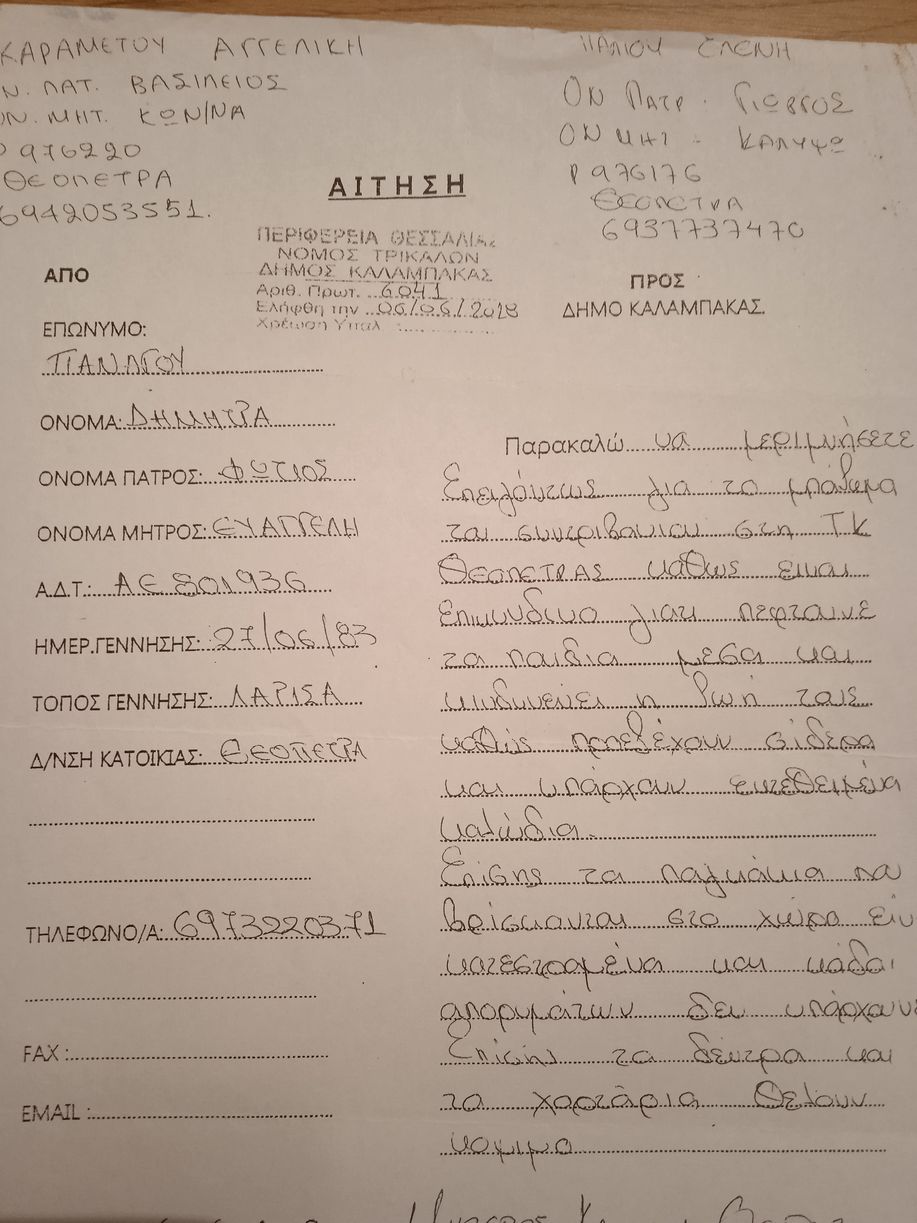 ΚΑΡΑΜΕΤΟΥ ΑΓΓΕΛΙΚΗ
ΟΝ. ΠΑΤ. ΒΑΣΙΛΕΙΟΣ
ΟΝ. ΜΗΤ. ΚΩΝ/ΝΑ
Ρ 976220
ΘΕΟΠΕΤΡΑ
6942053551.
ΠΑΛΙΟΥ ΕΛΕΝΗ
ΟΝ ΠΑΤΡ. ΓΙΩΡΓΟΣ
ΟΝ ΜΗΤ. ΚΑΛΥΨΩ
Ρ 976176
ΘΕΟΠΕΤΡΑ
6937737470
ΑΙΤΗΣΗ
ΠΕΡΙΦΕΡΕΙΑ ΘΕΣΣΑΛΙΑΣ
ΝΟΜΟΣ ΤΡΙΚΑΛΩΝ
ΔΗΜΟΣ ΚΑΛΑΜΠΑΚΑΣ
Αριθ. Πρωτ. 6041
Ελήφθη την 06/06/2018
Χρέωση Υπαλ :
ΑΠΟ
ΕΠΩΝΥΜΟ:
ΠΑΝΑΓΟΥ
ΟΝΟΜΑ: ΔΗΜΗΤΡΑ
ΟΝΟΜΑ ΠΑΤΡΟΣ: ΦΩΤΙΟΣ
ΟΝΟΜΑ ΜΗΤΡΟΣ: ΕΥΑΓΓΕΛΗ
Α.Δ.Τ.: ΑΕ 801936
ΗΜΕΡ.ΓΕΝΝΗΣΗΣ: 27/06/83
ΤΟΠΟΣ ΓΕΝΝΗΣΗΣ: ΛΑΡΙΣΑ
Δ/ΝΣΗ ΚΑΤΟΙΚΙΑΣ: ΘΕΟΠΕΤΡΑ
ΤΗΛΕΦΩΝΟ/Α: 6973220371
FAX :
EMAIL :
ΠΡΟΣ
ΔΗΜΟ ΚΑΛΑΜΠΑΚΑΣ.
Παρακαλώ να μεριμνήσετε
για το
του συντριβανιου στη ΤΚ
ΘΕΟΠΕΤΡΑΣ καθως ειναι
γιατι
τα παιδια μεσα και
κινδυνευει η ζωή τους
καθώς προεξέχουν σίδερα
και υπάρχουν εκτεθειμένα
καλώδια.
Επίσης τα παγκάκια που
βρίσκονται στο χώρο είν
κατεστραμένα και κάδοι
απορριμάτων δεν υπάρχουν
Επίσης τα δέντρα και
τα χορτάρια θελουν
κοψιμο